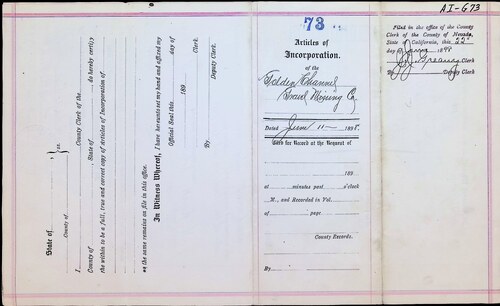 AI-673
State of
ss.
County of
I
County Clerk of the
County of , State of do hereby certify
the within to be a full, true and correct copy of Articles of Incorporation of
as the same remains on file in this office.
In Witness Whereof, I have hereunto set my hand and affixed my
Official Seal this day of
189
Clerk.
By
Deputy Clerk.
73
Articles of
Incorporation.
of the
Golden Channel
Gravel Mining Co
Dated June 11 1898.
Filed for Record at the Request of
189
at minutes past o'clock
M., and Recorded in Vol.
of page
County Records.
By
Filed in the office of the County
Clerk of the County of Nevada,
State of California, this 22"
day of June 1898
Clerk
By Deputy Clerk